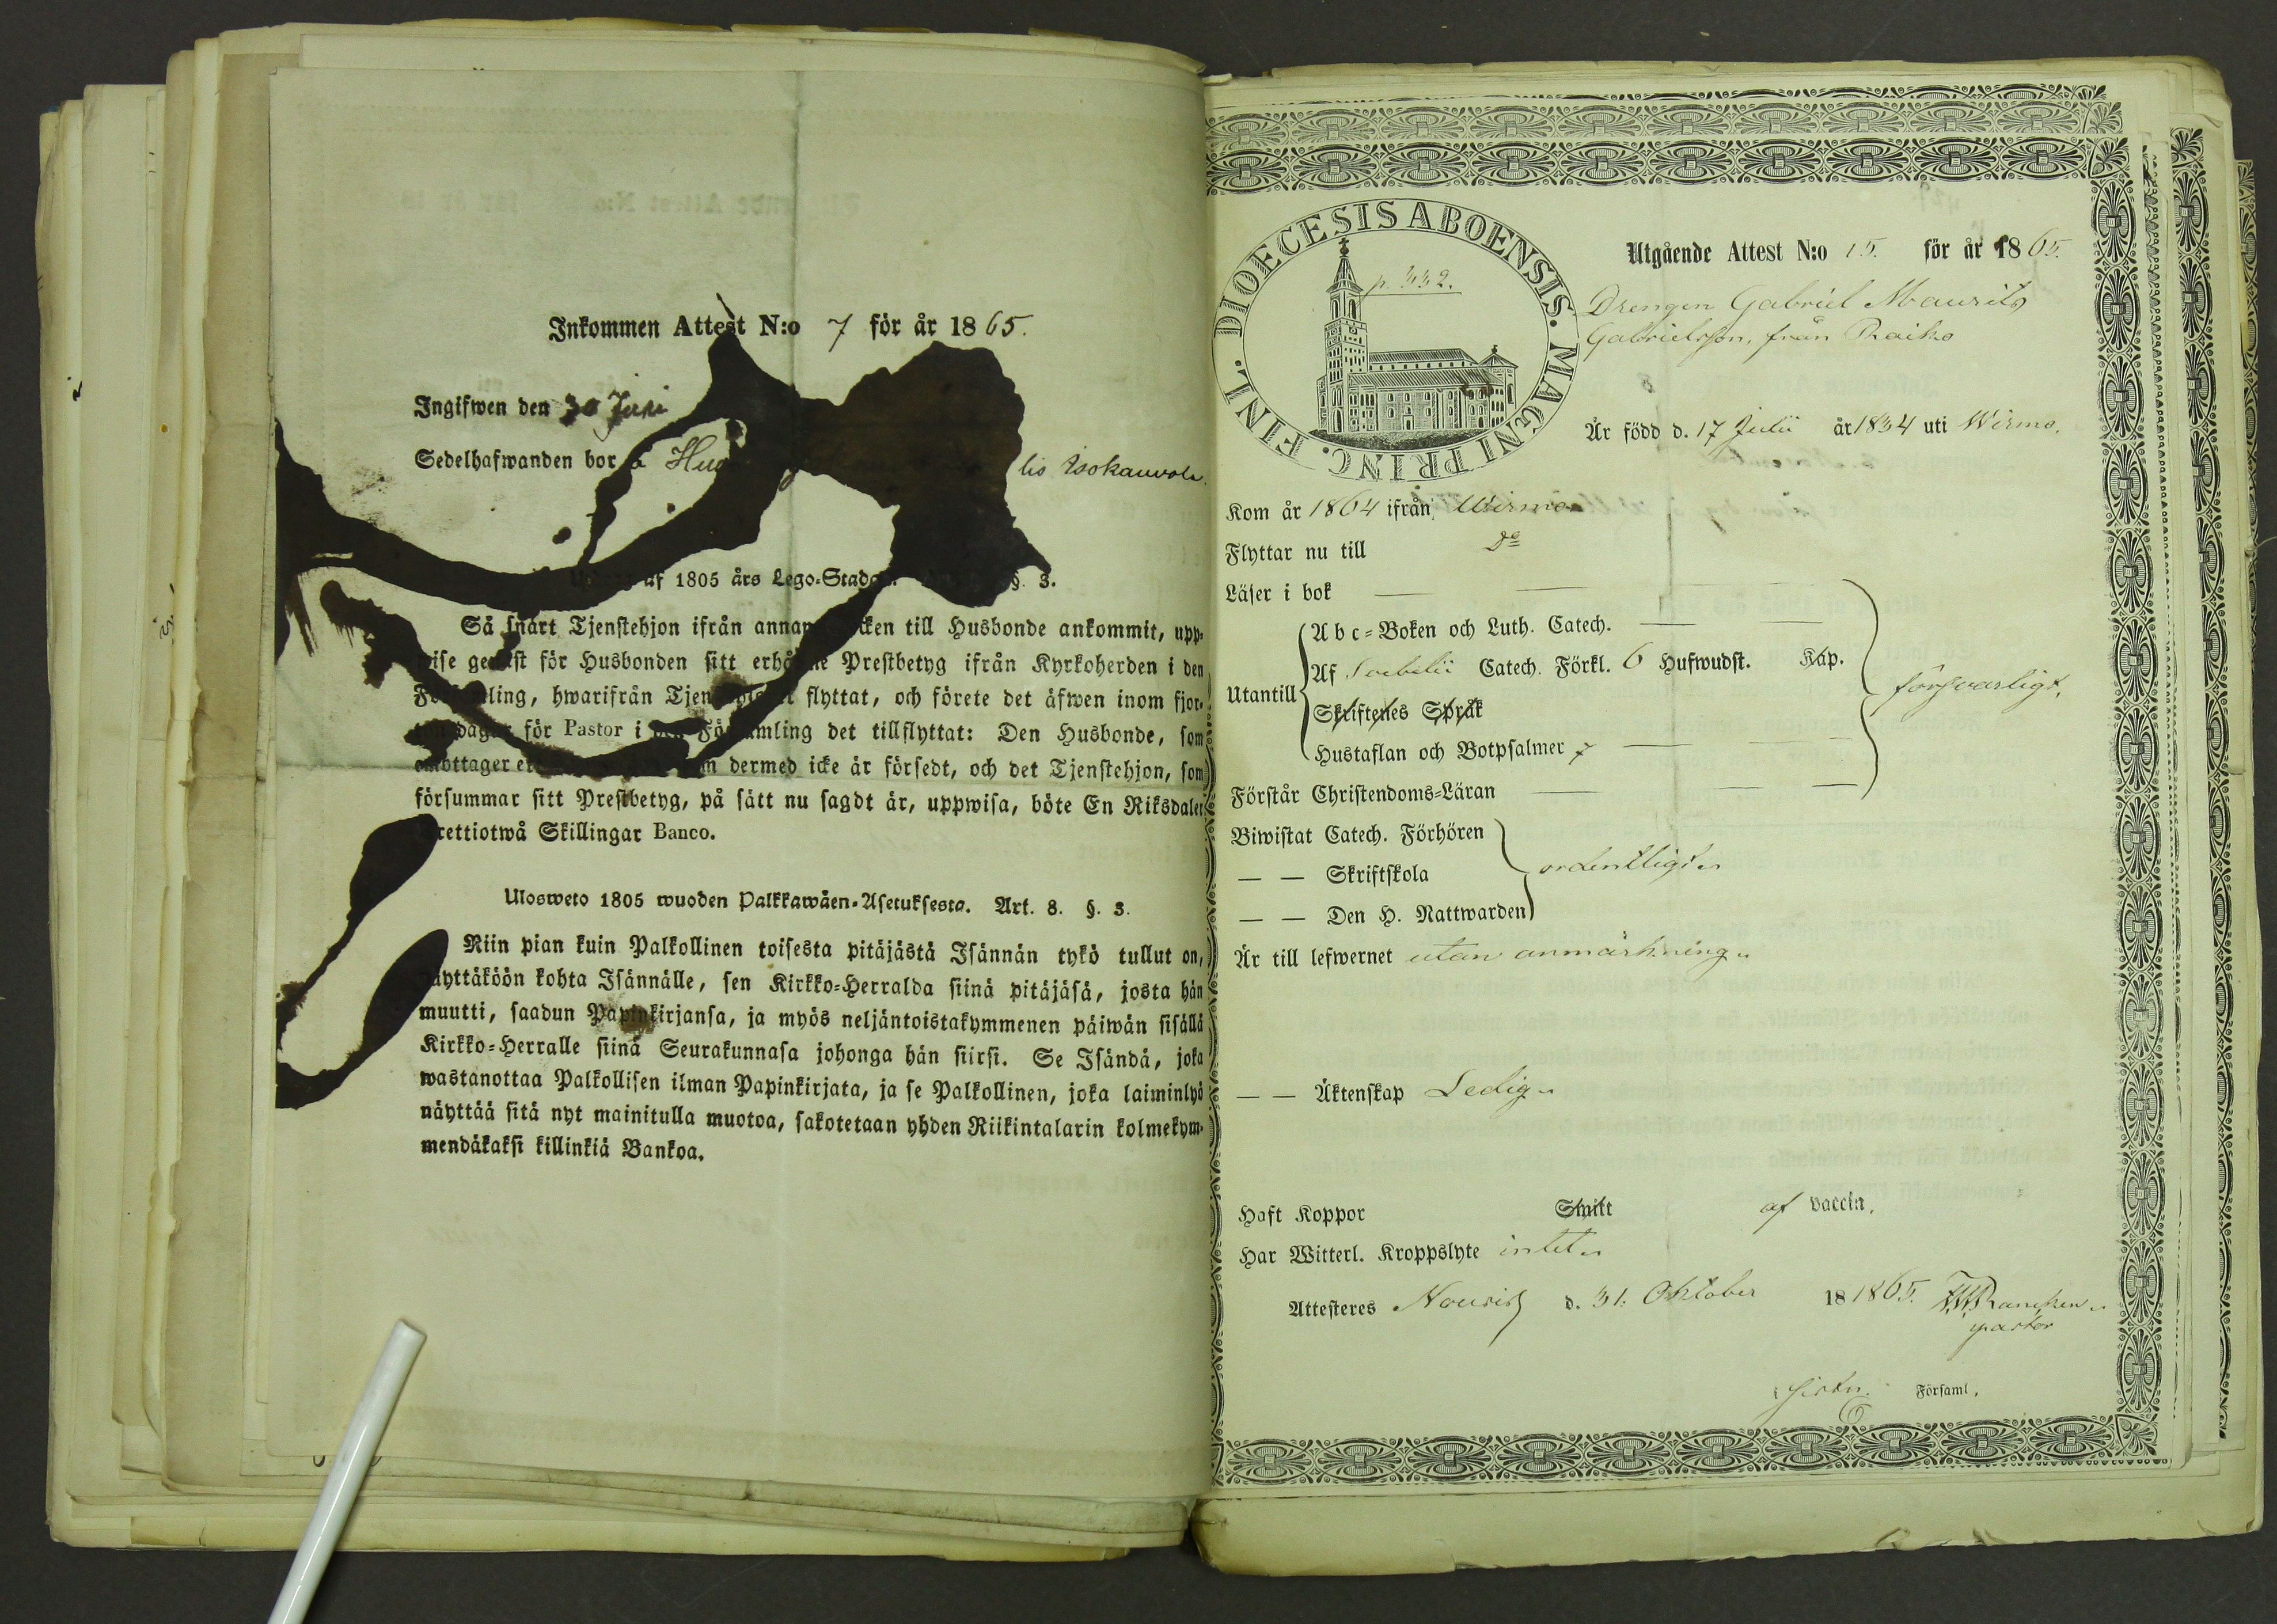 Inkommen Attest N:o 7 för år 1865.
Ingifwen den 30 Juni
Sedelhafwanden bor å
lis Isokauvola.
af 1805 års Lego-Stadg §. 3.
Så snart Tjenstehjon ifrån annan cken till Husbonde ankommit, upp-
wise genast för Husbonden sitt erhållne Prestbetyg ifrån Kyrkoherden i den
Församling, hwarifrån Tjenstehjonet flyttat, och förete det äfwen inom fjor-
ton dagar för Pastor i den Församling det tillflyttat: Den Husbonde, som
emottager ett dermed icke är försedt, och det Tjenstehjon, som
försummar sitt Prestbetyg, på sätt nu sagdt är, uppwisa, böte En Riksdaler
trettiotwå Skillingar Banco.
Ulosweto 1805 wuoden Palkkawäen-Asetuksesta. Art. 8. §. 3.
Niin pian kuin Palkollinen toisesta pitäjästä Isännän tykö tullut on,
näyttäköön kohta Isännälle, sen Kirkko-Herralda siinä pitäjäsä, josta hän
muutti, saadun Papinkirjansa, ja myös neljäntoistakymmenen päiwän sisällä
Kirkko-Herralle siinä Seurakunnasa johonga hän siirsi. Se Isändä, joka
wastanottaa Palkollisen ilman Papinkirjata, ja se Palkollinen, joka laiminlyö
näyttää sitä nyt mainitulla muotoa, sakotetaan yhden Riikintalarin kolmekym-
mendäkaksi killinkiä Bankoa.
DIOECESIS ABOENSIS. MAGNI PRINC. FINL.
p. 332.
Utgående Attest N:o 15. för år 1865.
Drengen Gabriel Maurits
Gabrielsson, från Raiko
Är född d. 17 Julii år 1834 uti Wirmo.
Kom år 1864 ifrån Wirmo
Flyttar nu till Do
Läser i bok
Utantill
A b c-Boken och Luth. Catech.
Af Sebelii Catech. Förkl. 6 Hufwudst. Kap.
Skriftenes Språk
Hustaflan och Botpsalmer 7
försvarligt.
Förstår Christendoms-Läran
Biwistat Catech. Förhören
— — Skriftskola
ordentligt
— — Den H. Nattwarden
Är till lefwernet utan anmärkning
— — Äktenskap Ledig
Haft Koppor Smitt af vaccin.
Har Witterl. Kroppslyte intet
Attesteres Nousis d. 31. Oktober 18 1865.
pastor
Församl.